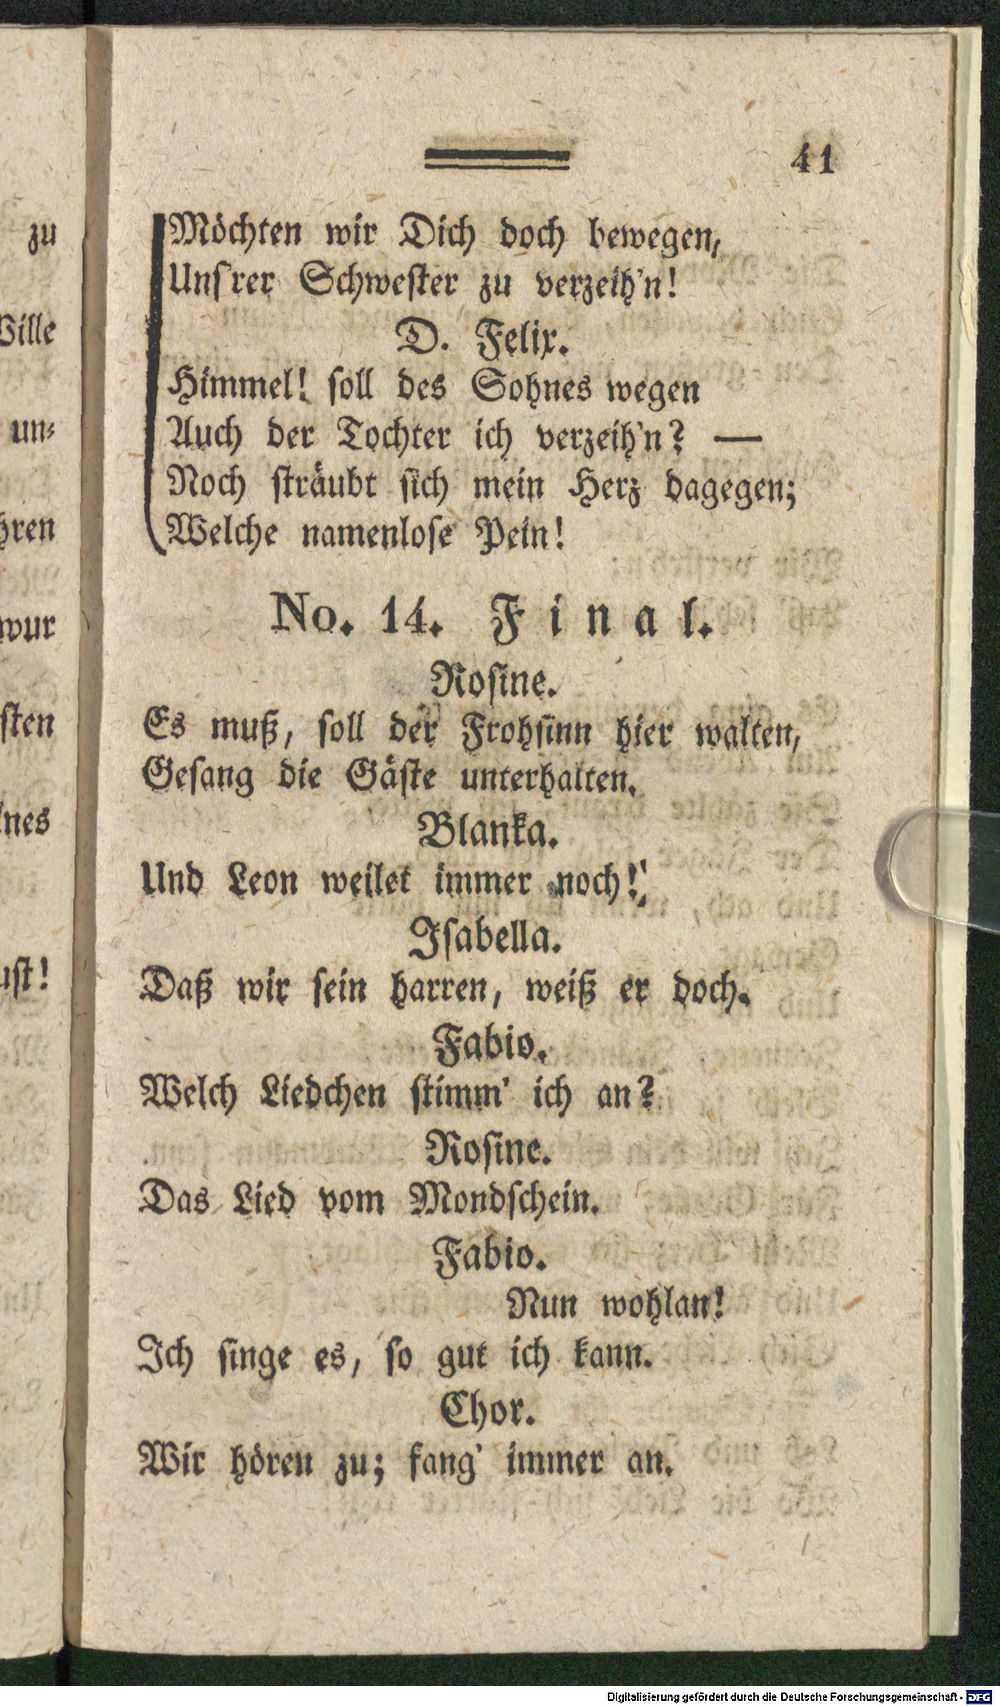 41
Möchten wir Dich doch bewegen,
Uns'rer Schwester zu verzeih'n!
D. Felix.
Himmel! soll des Sohnes wegen
Auch der Tochter ich verzeih'n? —
Noch sträubt sich mein Herz dagegen;
Welche namenlose Pein!
No. 14. Final.
Rosine.
Es muß, soll der Frohsinn hier walten,
Gesang die Gäste unterhalten.
Blanka.
Und Leon weilet immer noch!
Isabella.
Daß wir sein harren, weiß er doch.
Fabio.
Welch Liedchen stimm' ich an?
Rosine.
Das Lied vom Mondschein.
Fabio.
Nun wohlan!
Ich singe es, so gut ich kann.
Chor.
Wir hören zu; fang' immer an.
zu
Wille
un-
hren
wur
sten
nes
ust!
Digitalisierung gefördert durch die Deutsche Forschungsgemeinschaft - DFG